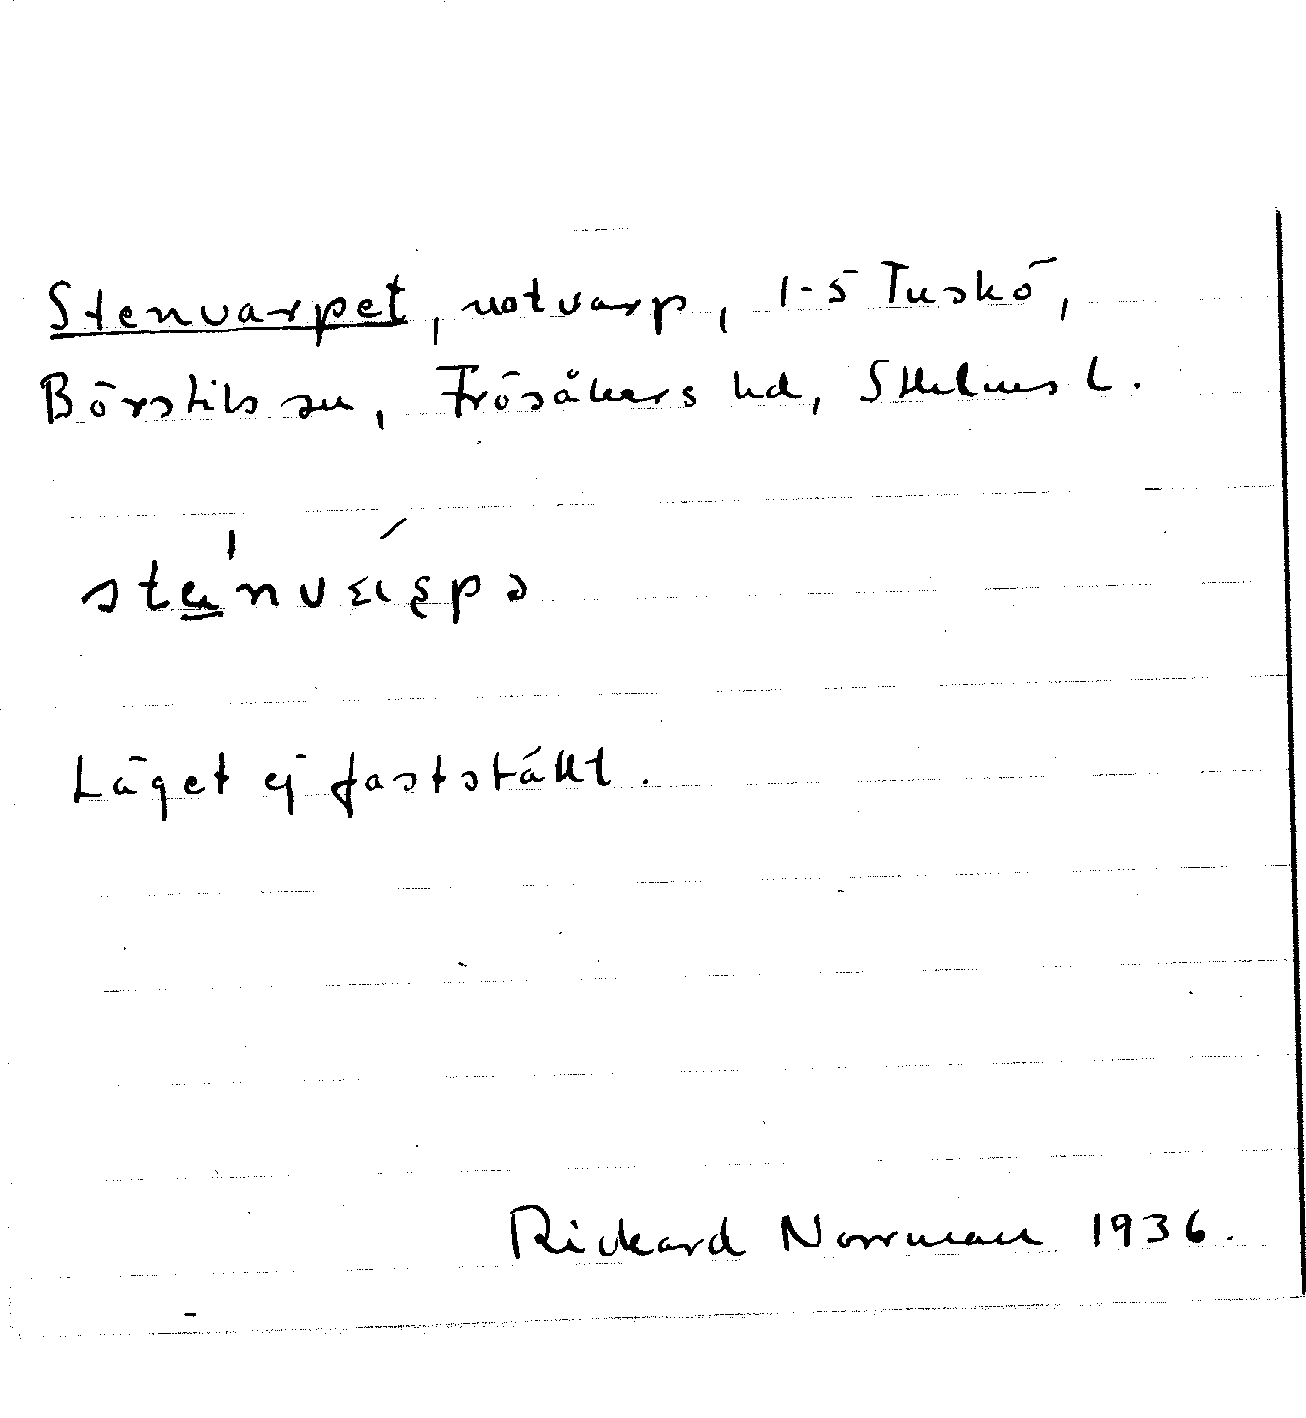 Stenvarpet, notvarp, 1-5 Tuskö,
Börstils sn, Frösåkers hd, Sthlms l.
Läget ej fastställt.
Rickard Norrman 1936.